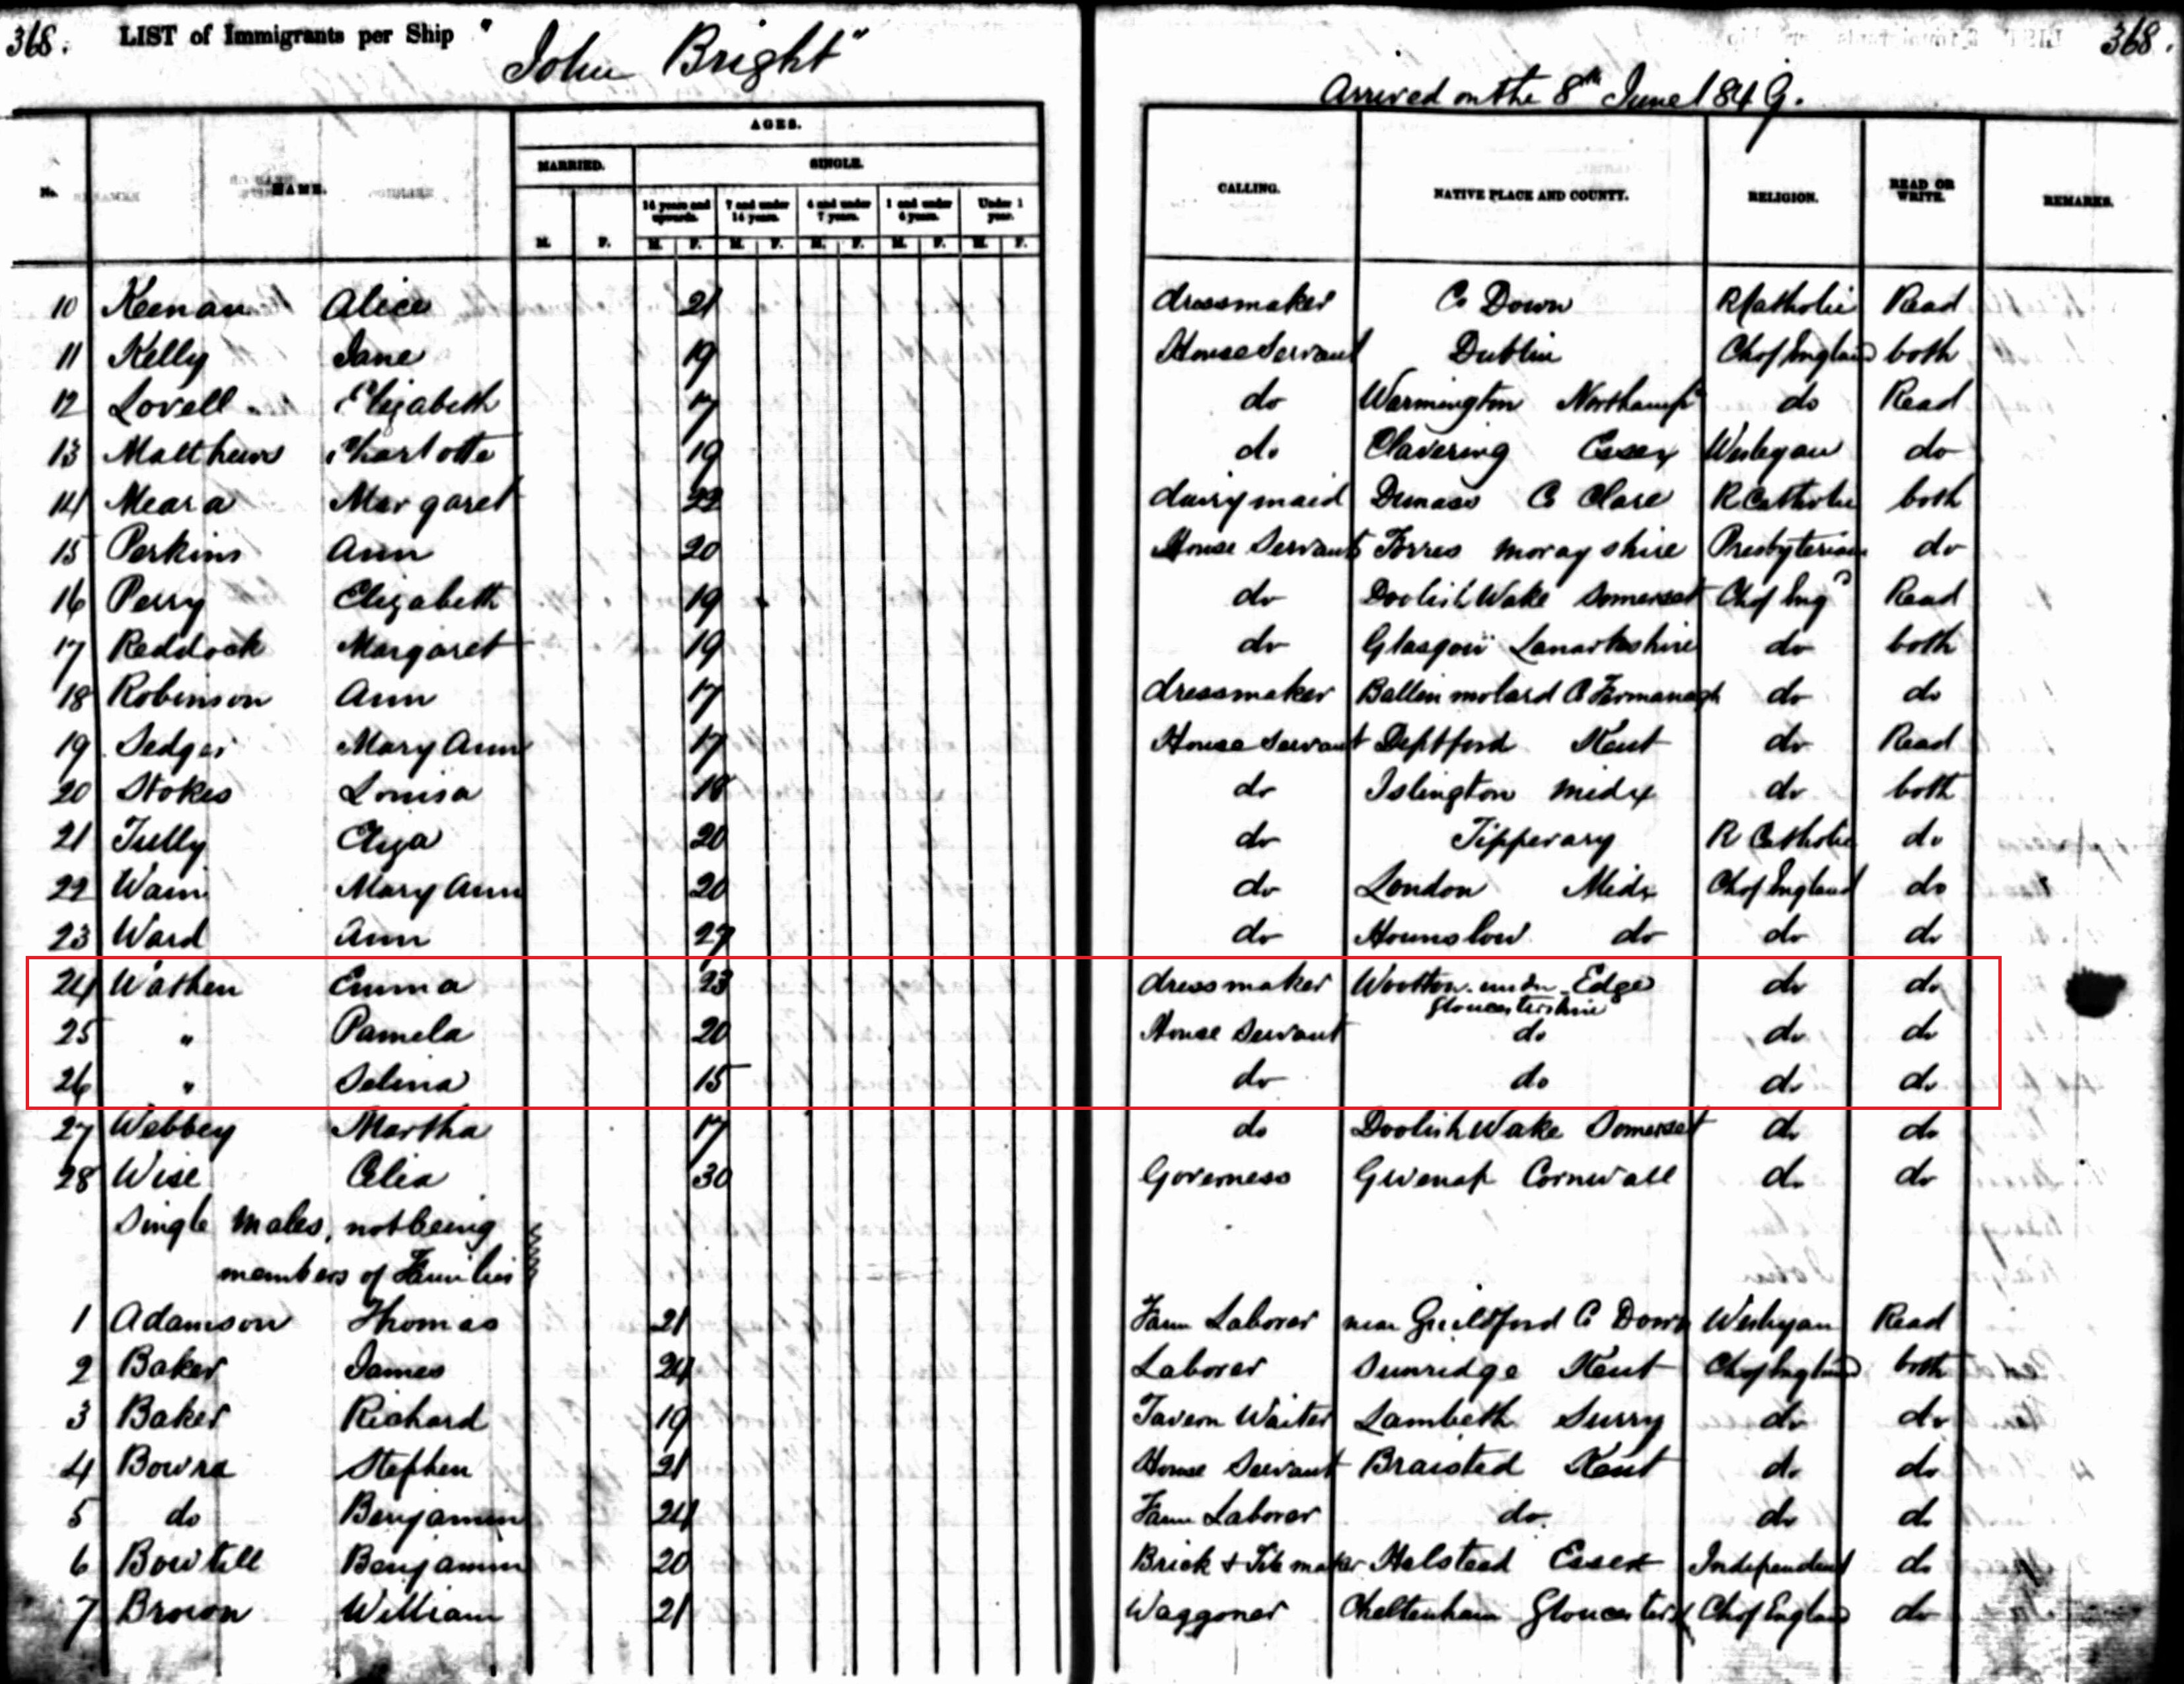 368. LIST of Immigrants per Ship "John Bright" 368.
Arrived on the 8th June 1849.
AGES.
MARRIED. SINGLE.
No. NAME. 14 years and upwards. 7 and under 14 years. 4 and under 7 years. 1 and under 4 years. Under 1 year. CALLING. NATIVE PLACE AND COUNTY. RELIGION. READ OR WRITE. REMARKS.
M. F. M. F. M. F. M. F. M. F. M. F.
10 Keenan Alice 21 dressmaker Co Down R Catholic Read
11 Kelly Jane 19 House Servant Dublin Ch of England both
12 Lovell Elizabeth 17 do Warmington Northamp do Read
13 Matthews Charlotte 19 do Clavering Essex Wesleyan do
14 Meara Margaret 22 dairymaid Co Clare R Catholic both
15 Perkins Ann 20 House Servant Forres morayshire Presbyterian do
16 Perry Elizabeth 19 do Doolish Wake Somerset Ch of Eng Read
17 Reddock Margaret 19 do Glasgow Lanarkshire do both
18 Robinson Ann 17 dressmaker Ballinmolard Co Fermanagh do do
19 Sedger Mary Ann 17 House Servant Deptford Kent do Read
20 Stokes Louisa 18 do Islington Midx do both
21 Tully Eliza 20 do Tipperary R Catholic do
22 Wain Mary Ann 20 do London Midx Ch of England do
23 Ward Ann 27 do Hounslow do do do
24 Wathen Emma 23 dressmaker Wootton under Edge do do
Gloucestershire
25 " Pamela 20 House Servant do do do
26 " Selina 15 do do do do
27 Webbey Martha 17 do Doolish Wake Somerset do do
28 Wise Celia 30 Governess Gwenap Cornwall do do
Single Males, not being
members of Families
1 Adamson Thomas 21 Farm Laborer near Guildford Co Down Wesleyan Read
2 Baker James 24 Laborer Sunridge Kent Ch of England both
3 Baker Richard 19 Tavern Waiter Lambeth Surry do do
4 Bowra Stephen 21 House Servant Braisted Kent do do
5 do Benjamin 24 Farm Laborer do do do
6 Bowtell Benjamin 20 Brick & Tile maker Halstead Essex Independent do
7 Brown William 21 Waggoner Cheltenham Gloucester Ch of England do